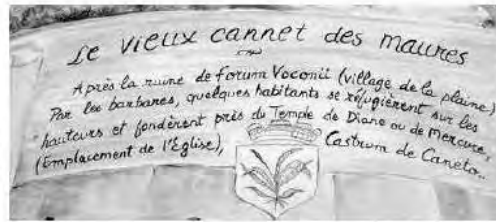 Le vieux cannet des maures
Après la ruine de forum Voconii (village de la plaine)
Par les barbares, quelques habitants se réfugièrent sur les
hauteurs et fondèrent près du Temple de Diane ou de Mercure,
(Emplacement de l'Eglise), Castrum de Caneto..